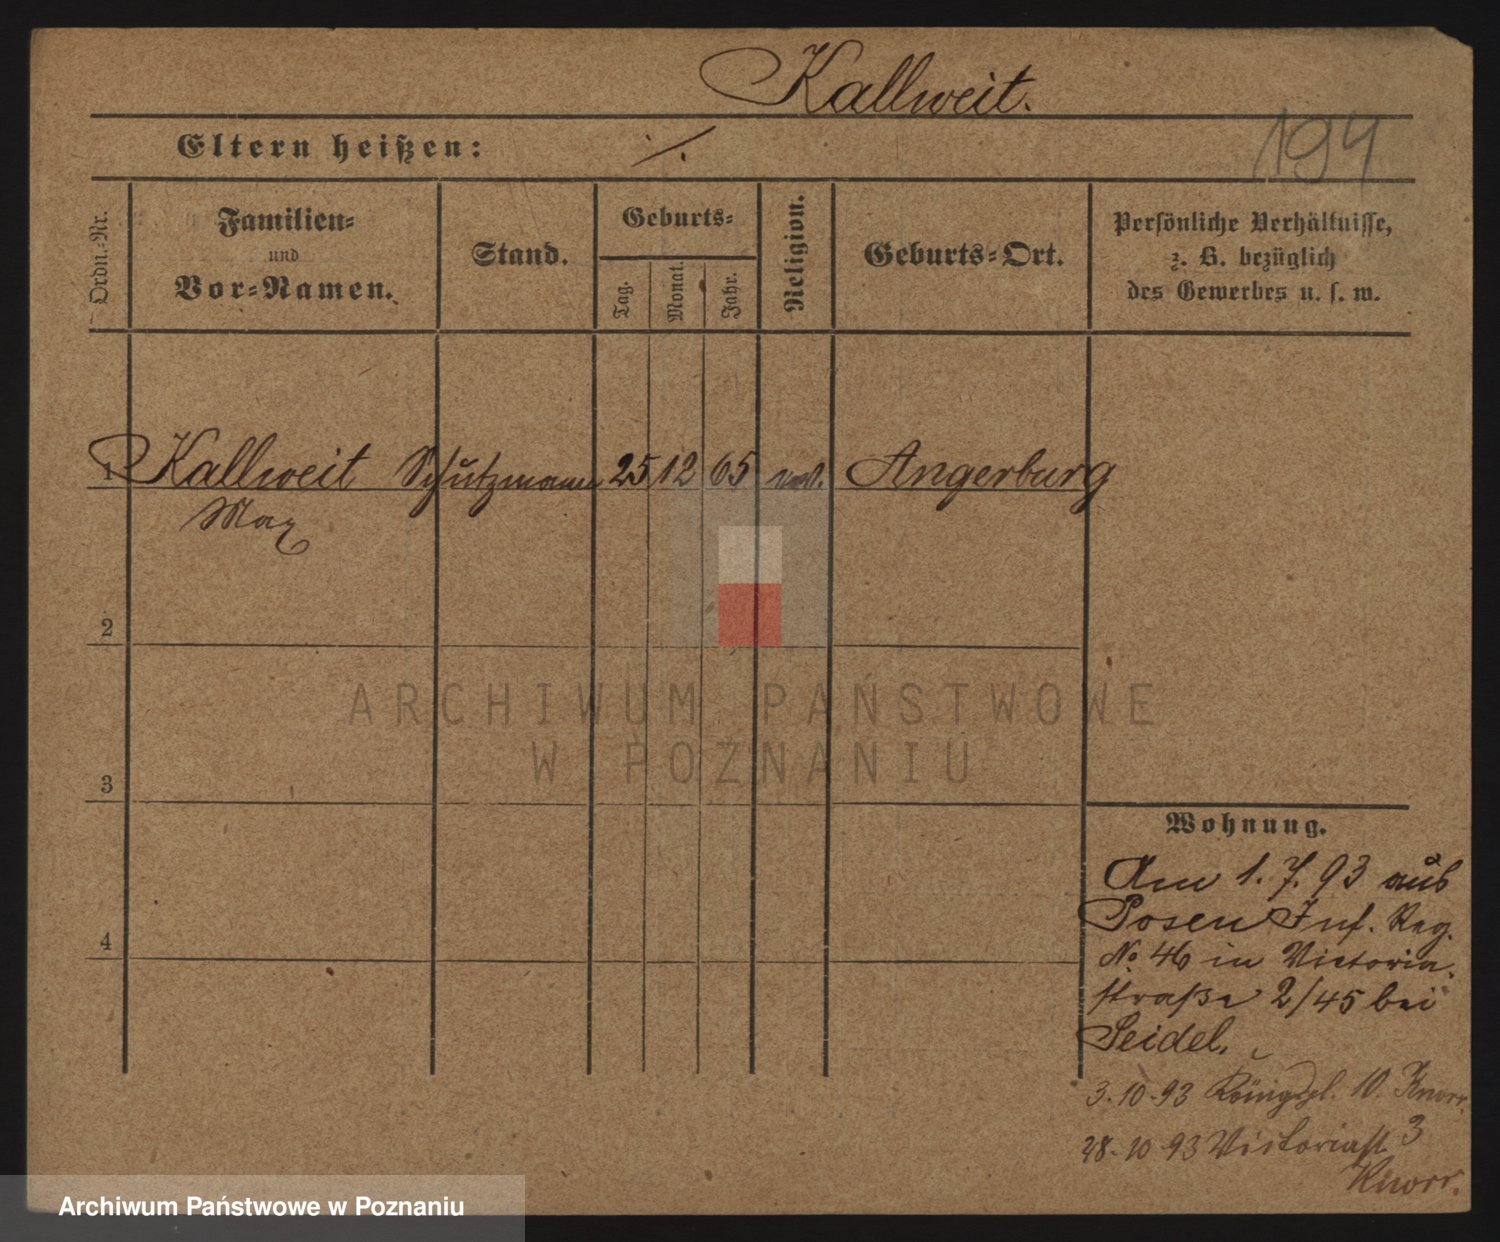 Kallweit.
194
Eltern heißen: ./.
Ordn.-Nr.
Familien-
und
Vor-Namen.
Stand.
Geburts-
Tag.
Monat.
Jahr.
Religion.
Geburts-Ort.
Persönliche Verhältnisse,
z. B. bezüglich
des Gewerbes u. s. w.
1 Kallweit Schutzmann 25 12 65 Angerburg
Max
2
ARCHIWUM PAŃSTWOWE
W POZNANIU
3
Wohnung.
Am 1. 7. 93 aus
Posen Inf. Reg.
No 46 in Victoria-
straße 2/45 bei
Seidel.
4
3.10.93 Königspl. 10. Knorr.
28.10 93 Victoriast. 3
Knorr.
Archiwum Państwowe w Poznaniu